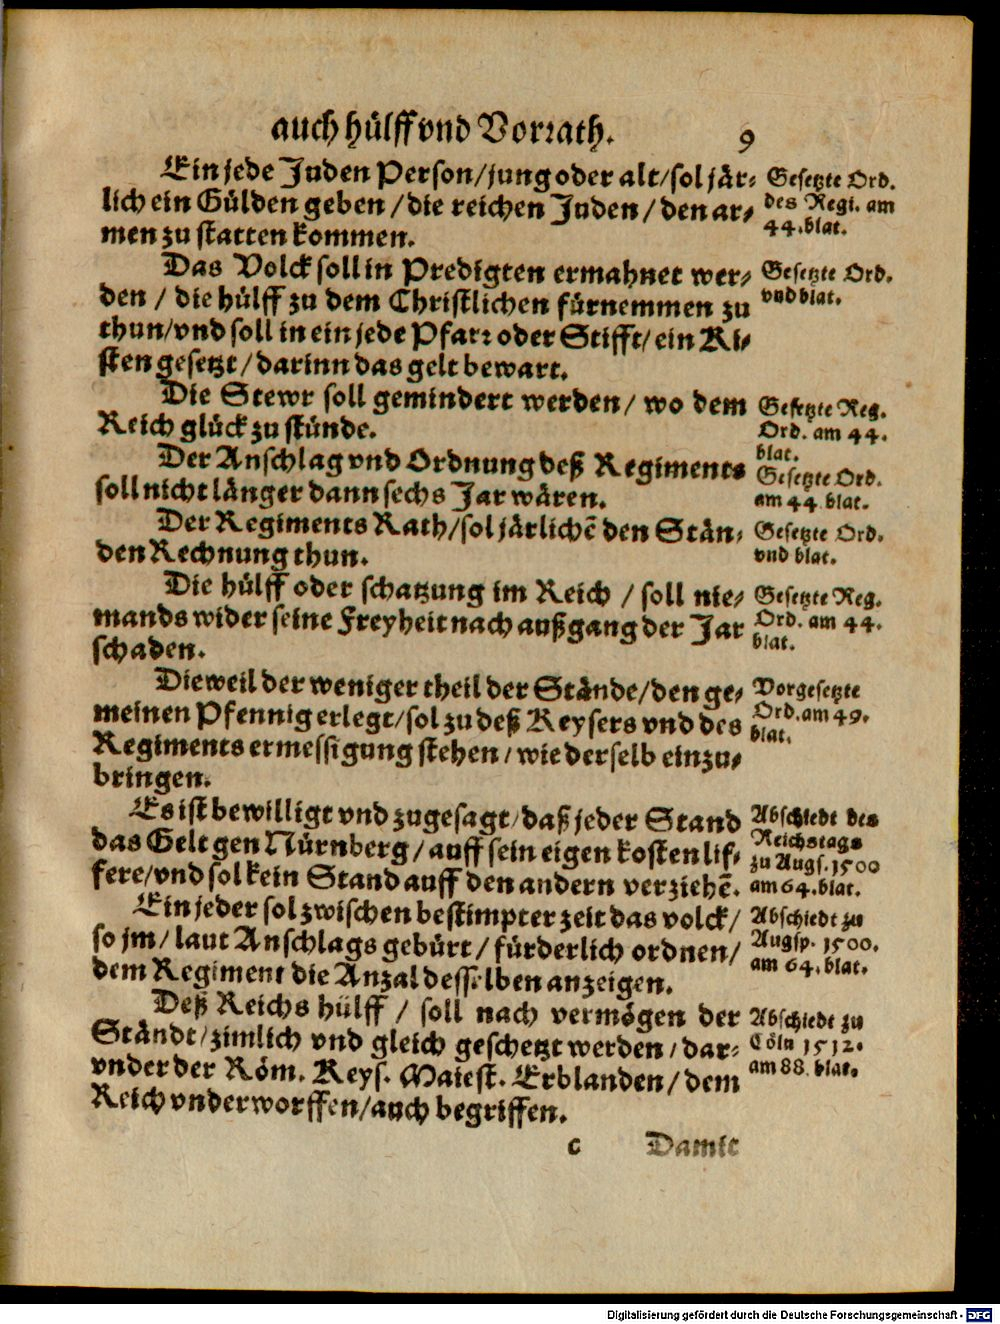 auch hülff vnd Vorrath. 9
Ein jede Juden Person/jung oder alt/sol jär-
lich ein Gülden geben/die reichen Juden/den ar-
men zu statten kommen.
Gesetzte Ord.
des Regi. am
44. blat.
Das Volck soll in Predigten ermahnet wer-
den/die hülff zu dem Christlichen fürnemmen zu
thun/vnd soll in ein jede Pfarr oder Stifft/ein Ki-
sten gesetzt/darinn das gelt bewart.
Gesetzte Ord.
vnd blat.
Die Stewr soll gemindert werden/wo dem
Reich glück zu stünde.
Gesetzte Reg.
Ord. am 44.
blat.
Der Anschlag vnd Ordnung deß Regiments
soll nicht länger dann sechs Jar wären.
Gesetzte Ord.
am 44 blat.
Der Regiments Rath/sol järlichē den Stän-
den Rechnung thun.
Gesetzte Ord.
vnd blat.
Die hülff oder schatzung im Reich/soll nie-
mands wider seine Freyheit nach außgang der Jar
schaden.
Gesetzte Reg.
Ord. am 44.
blat.
Dieweil der weniger theil der Stände/den ge-
meinen Pfennig erlegt/sol zu deß Keysers vnd des
Regiments ermessigung stehen/wie derselb einzu-
bringen.
Vorgesetzte
Ord. am 49.
blat.
Es ist bewilligt vnd zugesagt/daß jeder Stand
das Gelt gen Nürnberg/auff sein eigen kosten lif-
fere/vnd sol kein Stand auff den andern verziehē.
Abschiedt des
Reichstags
zu Augs. 1500
am 64. blat.
Ein jeder sol zwischen bestimpter zeit das volck/
so jm/laut Anschlags gebürt/fürderlich ordnen/
dem Regiment die Anzal desselben anzeigen.
Abschiedt zu
Augsp. 1500.
am 64. blat.
Deß Reichs hülff/soll nach vermögen der
Ständt/zimlich vnd gleich geschetzt werden/dar-
vnder der Röm. Keys. Maiest. Erblanden/dem
Reich vnderworffen/auch begriffen.
Abschiedt zu
Cöln 1512.
am 88. blat.
c Damit
Digitalisierung gefördert durch die Deutsche Forschungsgemeinschaft - DFG